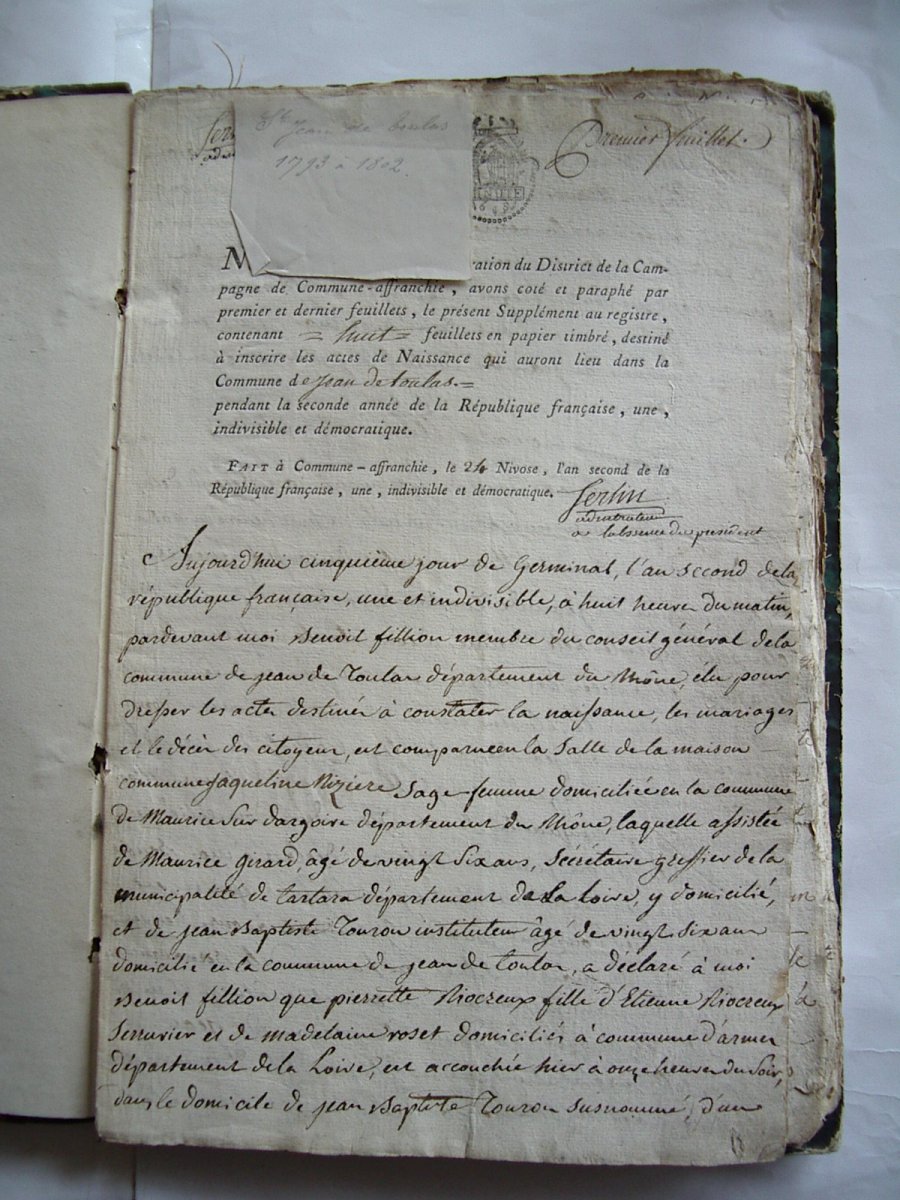 Premier feuillet.
St Jean de toulas
1793 à 1802.
N
ration du District de la Cam-
pagne de Commune-affranchie, avons coté et paraphé par
premier et dernier feuillets, le présent Supplément au registre,
contenant = huit = feuillets en papier timbré, destiné
à inscrire les actes de Naissance qui auront lieu dans la
Commune de Jean de toulas. =
pendant la seconde année de la République française, une,
indivisible et démocratique.
FAIT à Commune-affranchie, le 24 Nivose, l'an second de la
République française, une, indivisible et démocratique.
a labsence du president
Aujourd'hui cinquieme jour de Germinal, l'an second de la
république française, une et indivisible, à huit heures du matin,
pardevant moi Benoit fillion membre du conseil général de la
commune de jean de Toulas département du Rhône, élu pour
dresser les actes destinés à constater la naissance, les mariages
et le décès des citoyens, est comparue en la Salle de la maison
commune Jaqueline Rizière Sage-femme domiciliée en la commune
de Maurice Sur dargoire département du Rhône, laquelle assistée
de Maurice Girard, âgé de vingt Six ans, Sécrétaire greffier de la
municipalité de tartara département de La Loire, y domicilié,
et de jean Baptiste Touron instituteur âgé de vingt Six ans
domicilié en la commune de jean de toulas, a déclaré à moi
Benoit fillion que pierrette Riocreux fille d'Etienne Riocreux
Serrurier et de madelaine roset domiciliés à commune d'armes
département de la Loire, est accouchée hier à onze heures du Soir,
dans le domicile de jean Baptiste Touron susnommé, d'un